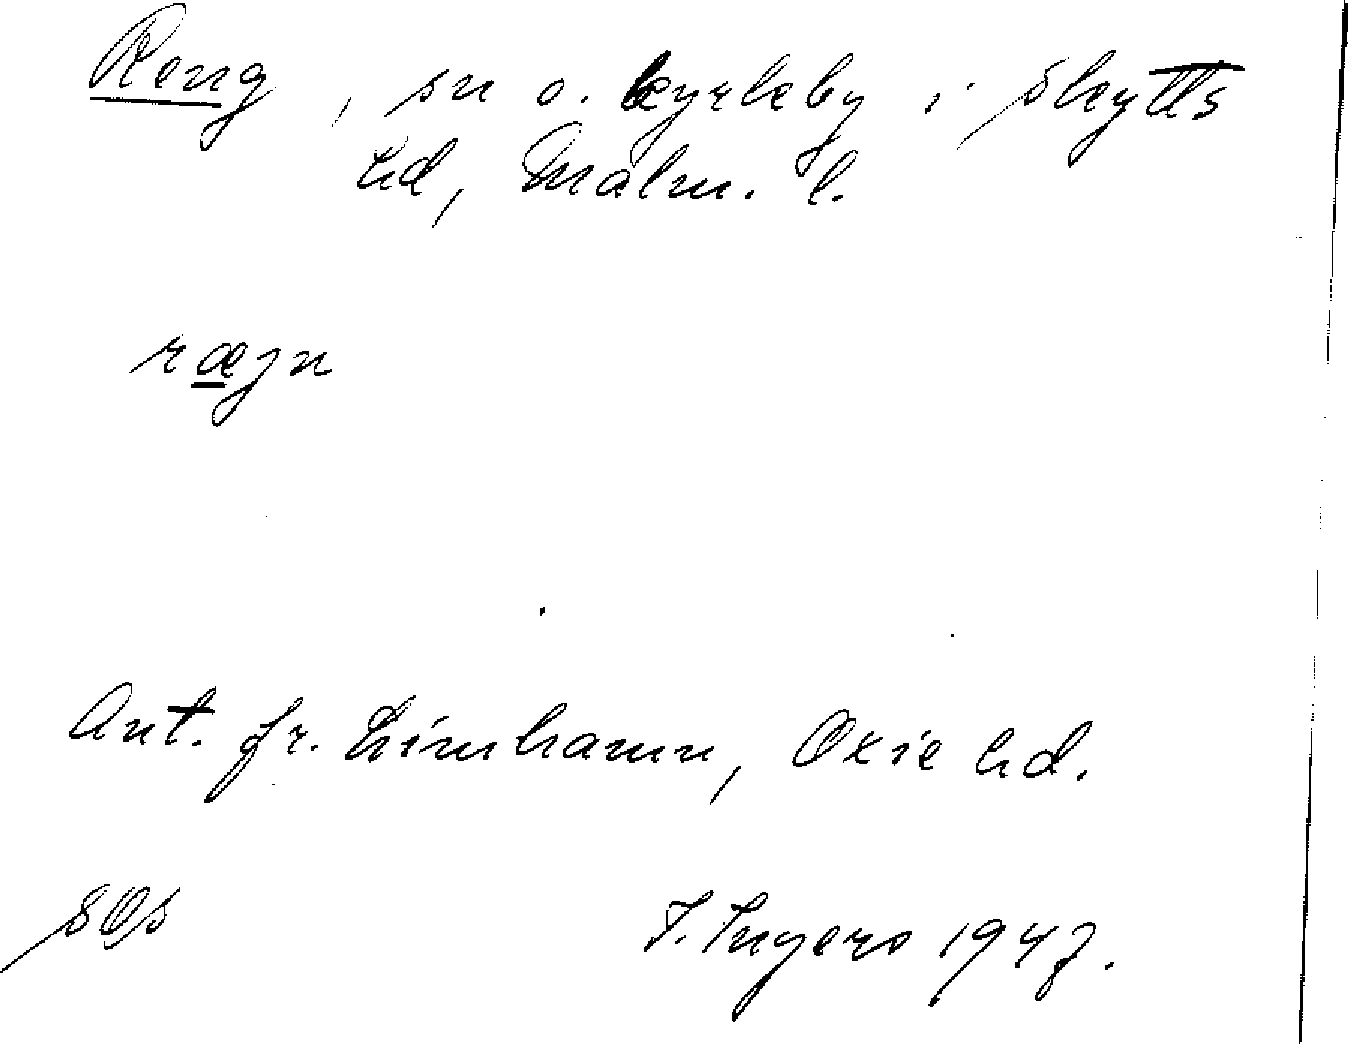 Reng, sn o. kyrkby i Skytts
hd, Malm. l.
ræjn
Ant. fr. Limhamn, Oxie hd.
I. Ingers 1947.